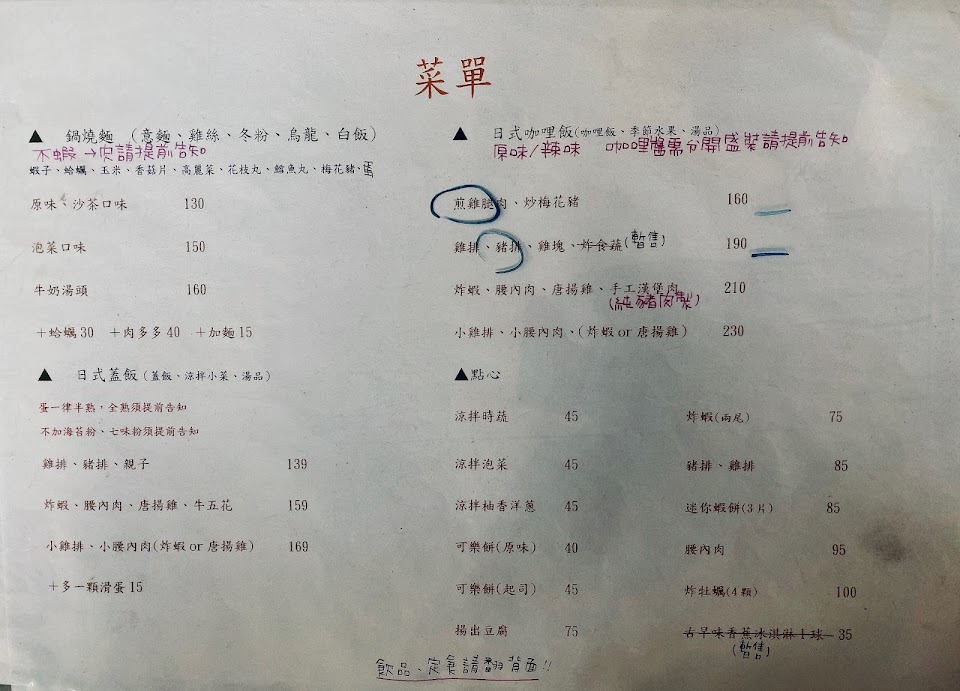 菜單
▲ 鍋燒麵 (意麵、雞絲、冬粉、烏龍、白飯)
不蝦→皮請提前告知
蝦子、蛤蠣、玉米、香菇片、高麗菜、花枝丸、鱈魚丸、梅花豬、蛋
原味、沙茶口味 130
泡菜口味 150
牛奶湯頭 160
+蛤蠣30 +肉多多40 +加麵15
▲ 日式蓋飯(蓋飯、涼拌小菜、湯品)
蛋一律半熟,全熟須提前告知
不加海苔粉、七味粉須提前告知
雞排、豬排、親子 139
炸蝦、腰內肉、唐揚雞、牛五花 159
小雞排、小腰內肉(炸蝦or唐揚雞) 169
+多一顆滑蛋15
▲ 日式咖哩飯(咖哩飯、季節水果、湯品)
原味/辣味 咖哩醬需分開盛裝請提前告知
煎雞腿肉、炒梅花豬 160
雞排、豬排、雞塊、炸食蔬(暫售) 190
炸蝦、腰內肉、唐揚雞、手工漢堡肉 210
(純豬肉製)
小雞排、小腰內肉、(炸蝦or唐揚雞) 230
▲點心
涼拌時蔬 45
涼拌泡菜 45
涼拌柚香洋蔥 45
可樂餅(原味) 40
可樂餅(起司) 45
揚出豆腐 75
炸蝦(兩尾) 75
豬排、雞排 85
迷你蝦餅(3片) 85
腰內肉 95
炸牡蠣(4顆) 100
古早味香蕉冰淇淋1球 35
(暫售)
飲品、定食請翻背面!!